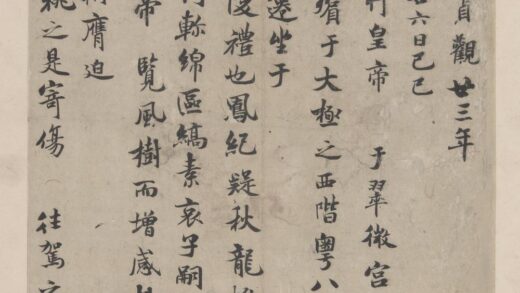 貞觀廿三年
六日己巳
行皇帝 于翠微宮
殯于大極之西階粵八
遷坐于
禮也鳳紀疑秋龍
軫綿區縞素哀子嗣
帝 覽風樹而增感
膺迫
祧之是寄傷 往駕之